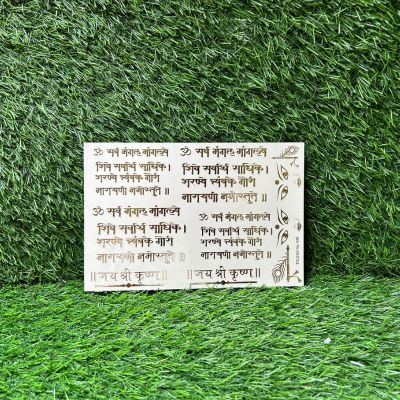 ॐ सर्व मंगल मांगल्ये
शिवे सर्वार्थ साधिके।
शरण्ये त्र्यंबके गौरी
नारायणी नमोस्तुते ॥
ॐ सर्व मंगल मांगल्ये
शिवे सर्वार्थ साधिके।
शरण्ये त्र्यंबके गौरी
नारायणी नमोस्तुते ॥
ॐ सर्व मंगल मांगल्ये
शिवे सर्वार्थ साधिके।
शरण्ये त्र्यंबके गौरी
नारायणी नमोस्तुते ॥
ॐ सर्व मंगल मांगल्ये
शिवे सर्वार्थ साधिके।
शरण्ये त्र्यंबके गौरी
नारायणी नमोस्तुते ॥
॥ जय श्री कृष्ण ॥
॥ जय श्री कृष्ण ॥